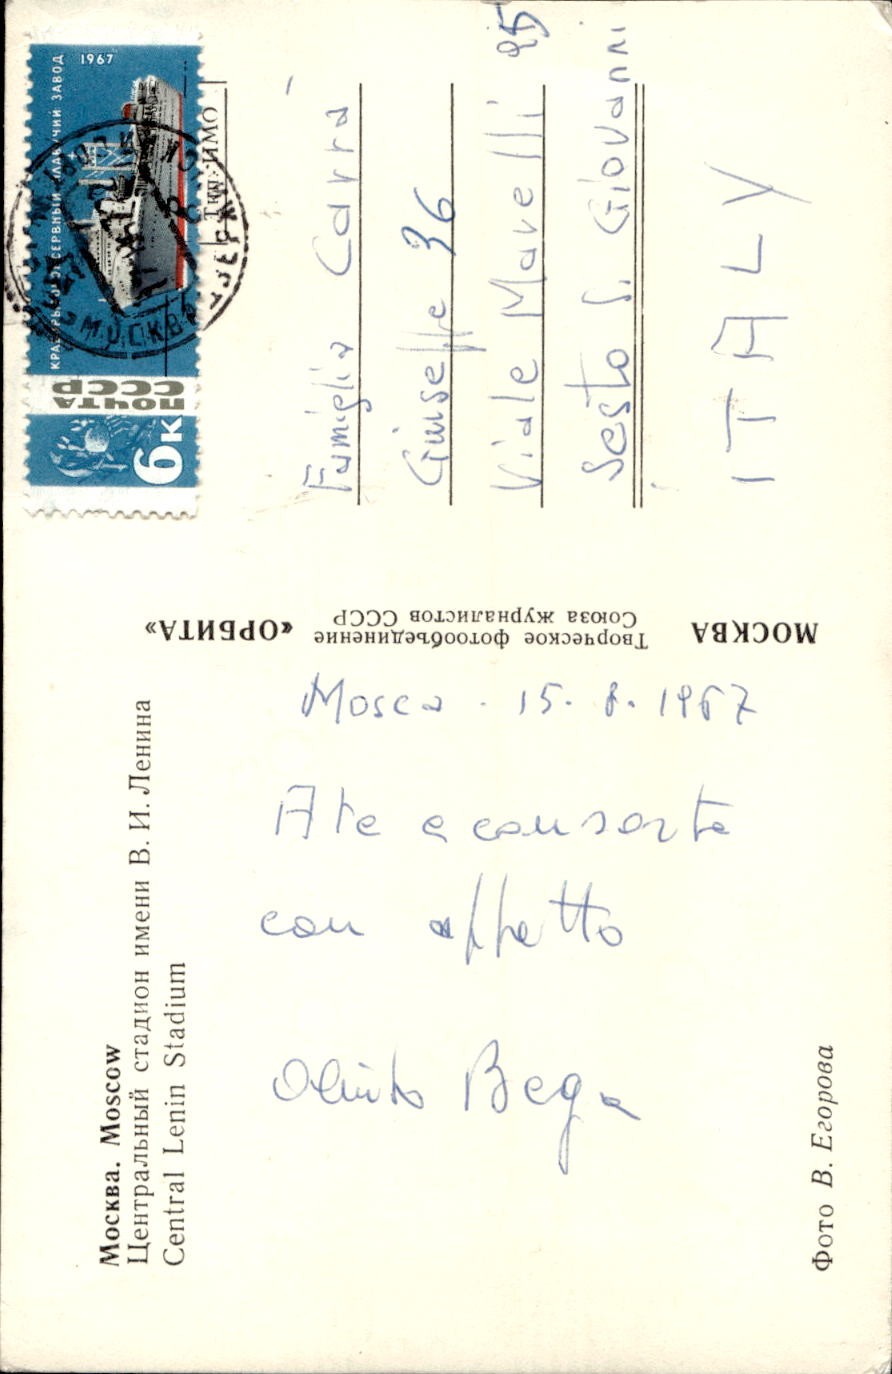 Москва. Moscow
Центральный стадион имени В. И. Ленина
Central Lenin Stadium
Mosca - 15. 8. 1967
A te e consorte
con affetto
Bega
Фото В. Егорова
МОСКВА
Творческое фотообъединение
Союза журналистов СССР
«ОРБИТА»
1967
ЗАВОД
ПОЧТА
СССР
6к
МОСКВА
Famiglia Carrà
Giuseppe 36
Viale Marelli 25
Sesto S. Giovanni
ITALY